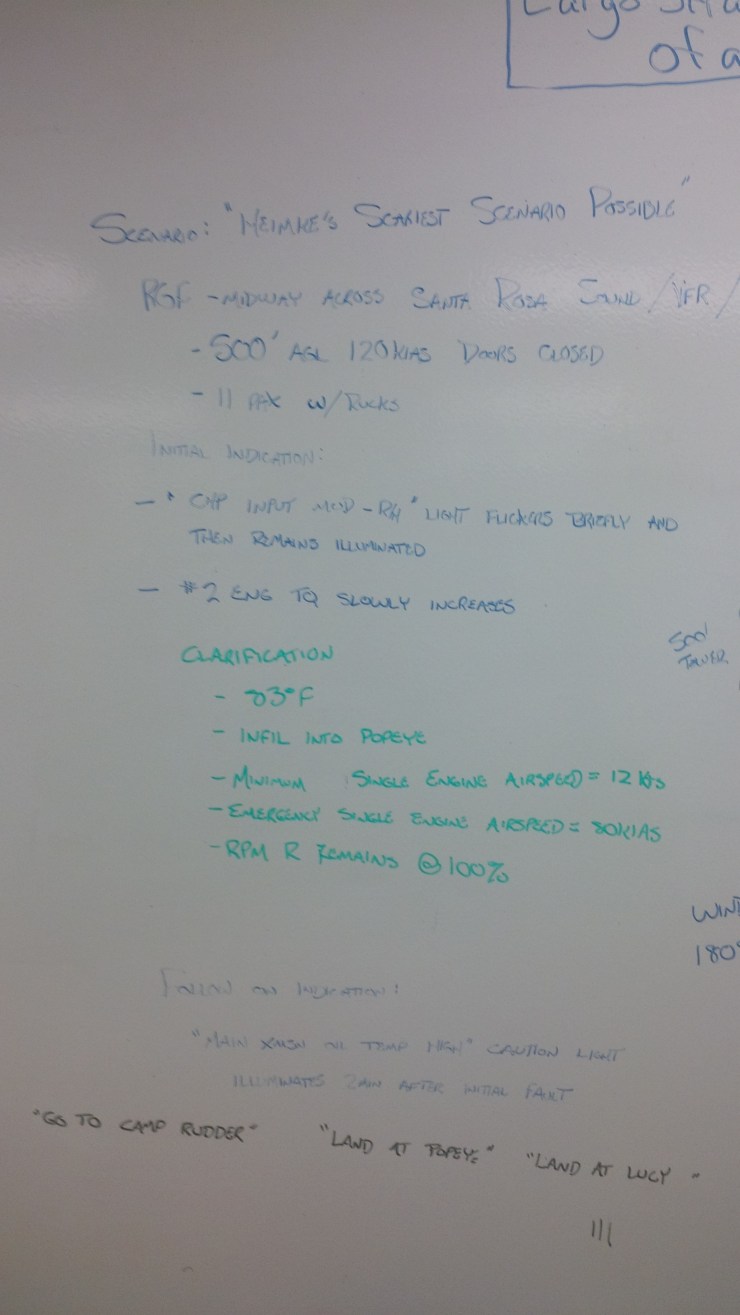 of a
SCENARIO: "HEIMKE'S SCARIEST SCENARIO POSSIBLE"
- MIDWAY ACROSS SANTA ROSA SOUND / VFR /
- 500' AGL 120 KIAS DOORS CLOSED
- 11 PAX W/ RUCKS
INITIAL INDICATION:
- "CHP INPUT MOD - RH" LIGHT FLICKERS BRIEFLY AND
THEN REMAINS ILLUMINATED
- #2 ENG TQ SLOWLY INCREASES
500'
CLARIFICATION
- 83°F
- INFIL INTO POPEYE
- MINIMUM SINGLE ENGINE AIRSPEED = 12 kts
- EMERGENCY SINGLE ENGINE AIRSPEED = 80KIAS
- RPM R REMAINS @ 100%
WIN
180°
FOLLOW ON INDICATION:
"MAIN XMSN OIL TEMP HIGH" CAUTION LIGHT
ILLUMINATES 2 MIN AFTER INITIAL FAULT
"GO TO CAMP RUDDER" "LAND AT POPEYE" "LAND AT LUCY"
|||